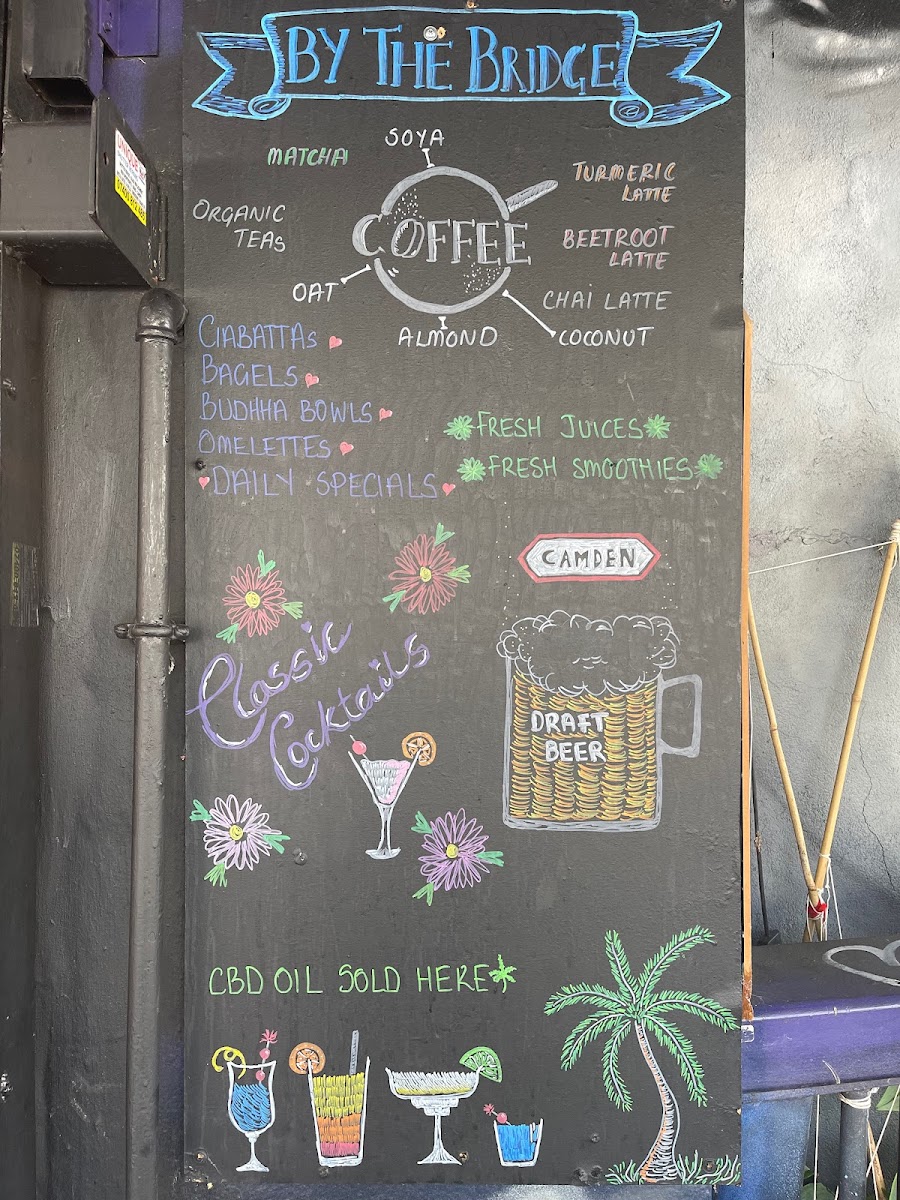 BY THE BRIDGE
SOYA
MATCHA
TURMERIC
LATTE
ORGANIC
TEAS
COFFEE
BEETROOT
LATTE
OAT
CHAI LATTE
ALMOND
COCONUT
CIABATTAS
BAGELS
BUDHHA BOWLS
OMELETTES
DAILY SPECIALS
FRESH JUICES
FRESH SMOOTHIES
CAMDEN
Classic
Cocktails
DRAFT
BEER
CBD OIL SOLD HERE